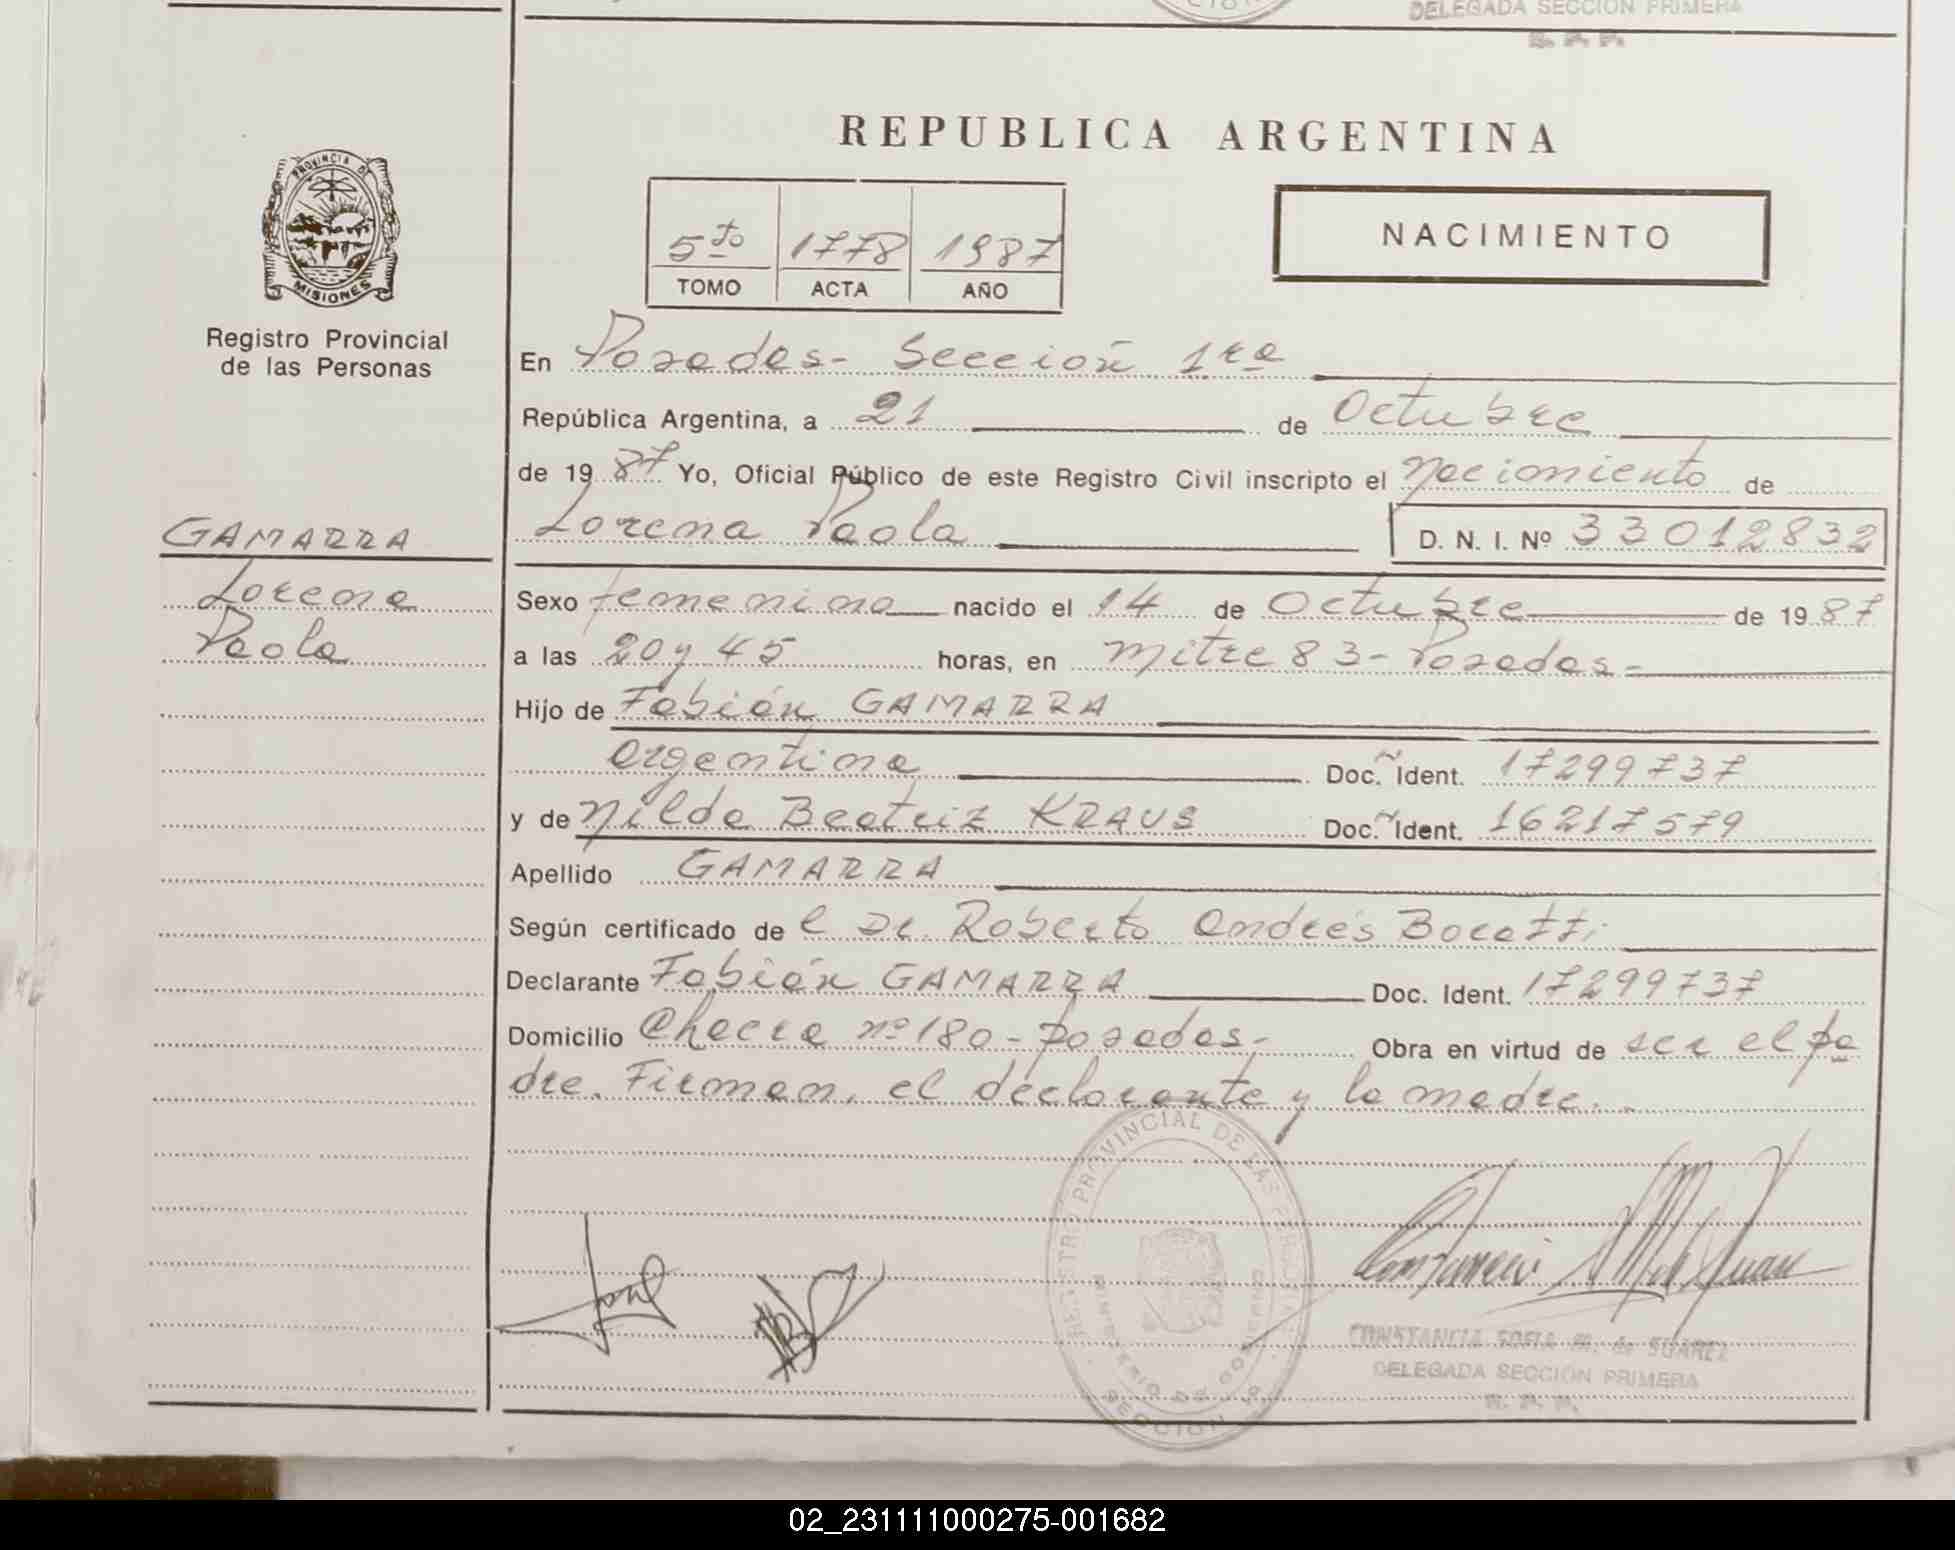 DELEGADA SECCION PRIMERA
R. P. P.
REPUBLICA ARGENTINA
PROVINCIA DE
MISIONES
Registro Provincial
de las Personas
5to 1778 1987
TOMO ACTA AÑO
NACIMIENTO
En Posadas- Sección 1ra
República Argentina, a 21 de Octubre
de 1987 Yo, Oficial Público de este Registro Civil inscripto el Nacimiento de
Lorena Paola D. N. I. Nº 33012832
GAMARRA
Lorena
Paola
Sexo femenino nacido el 14 de Octubre de 1987
a las 20 y 45 horas, en Mitre 83- Posadas-
Hijo de Fabián GAMARRA
argentina Doc. Ident. 17299737
y de Nilda Beatriz KRAUS Doc. Ident. 16217579
Apellido GAMARRA
Según certificado de l Dr. Roberto Andrés Bocatti
Declarante Fabián GAMARRA Doc. Ident. 17299737
Domicilio Chacra nº 180-Posadas- Obra en virtud de ser el pa
dre. Firman, el declarante y la madre.
REGISTRO PROVINCIAL DE LAS PERSONAS
MINISTERIO DE GOBIERNO
SECCION 1a
CONSTANCIA SOFIA M. de SUAREZ
DELEGADA SECCION PRIMERA
R. P. P.
02_231111000275-001682